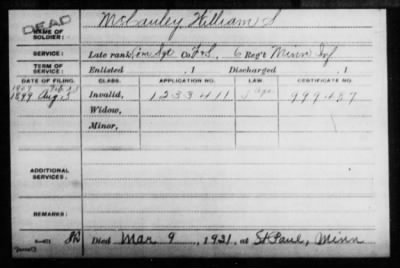 DEAD
NAME OF SOLDIER: McCauley William S
SERVICE: Late rank Com Sgt Co. F&S, 6 Reg't Minn Inf
TERM OF SERVICE Enlisted , 1 Discharged , 1
DATE OF FILING. CLASS. APPLICATION NO. LAW. CERTIFICATE NO.
1907 Feb
1899 Aug 3 Invalid, 1233411 Age 999487
Widow,
Minor,
ADDITIONAL SERVICES:
REMARKS:
Died Mar 9, 1921, at St Paul, Minn